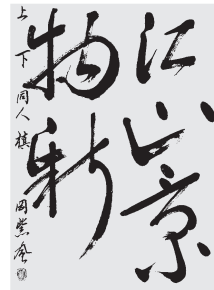 江山景
物新
上下同人